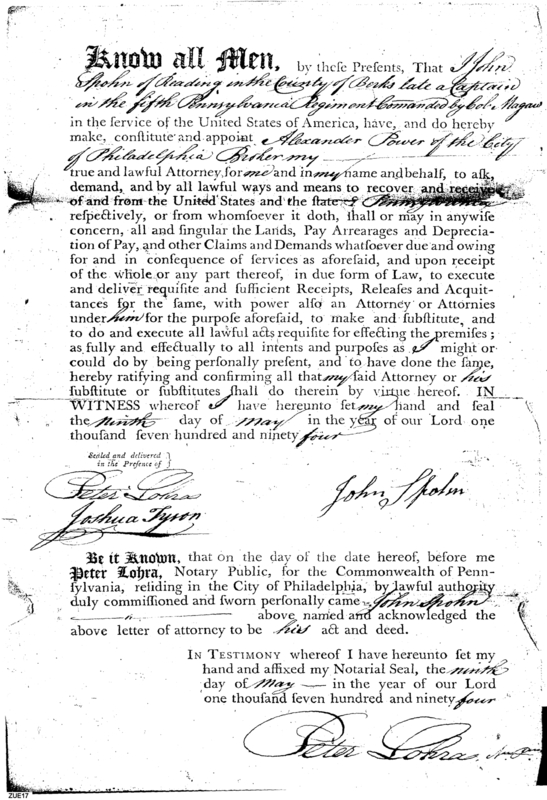 Know all Men, by theſe Preſents, That I John
Spohn of Reading in the County of Berks late a Captain
in the fifth Pennsylvania Regiment Comanded by Col. Magaw
in the ſervice of the United States of America, have, and do hereby
make, conſtitute and appoint Alexander Power of the City
of Philadelphia Broker my
true and lawful Attorney, for me and in my name and behalf, to aſk,
demand, and by all lawful ways and means to recover and receive
of and from the United States and the ſtate of Pennsylvania
reſpectively, or from whomſoever it doth, ſhall or may in anywiſe
concern, all and ſingular the Lands, Pay Arrearages and Deprecia-
tion of Pay, and other Claims and Demands whatſoever due and owing
for and in conſequence of ſervices as aforeſaid, and upon receipt
of the whole or any part thereof, in due form of Law, to execute
and deliver requiſite and ſufficient Receipts, Releaſes and Acquit-
tances for the ſame, with power alſo an Attorney or Attornies
under him for the purpoſe aforeſaid, to make and ſubſtitute, and
to do and execute all lawful acts requiſite for effecting the premiſes;
as fully and effectually to all intents and purpoſes as I might or
could do by being perſonally preſent, and to have done the ſame,
hereby ratifying and confirming all that my ſaid Attorney or his
ſubſtitute or ſubſtitutes ſhall do therein by virtue hereof. IN
WITNESS whereof I have hereunto ſet my hand and ſeal
the ninth day of May in the year of our Lord one
thouſand ſeven hundred and ninety four
Sealed and delivered
in the Preſence of
Peter Lohra
Joshua Tyson
John Spohn
Be it Known, that on the day of the date hereof, before me
Peter Lohra, Notary Public, for the Commonwealth of Penn-
ſylvania, reſiding in the City of Philadelphia, by lawful authority
duly commiſſioned and ſworn perſonally came John Spohn
above named and acknowledged the
above letter of attorney to be his act and deed.
IN TESTIMONY whereof I have hereunto ſet my
hand and affixed my Notarial Seal, the ninth
day of May in the year of our Lord
one thouſand ſeven hundred and ninety four
Peter Lohra
ZUE17